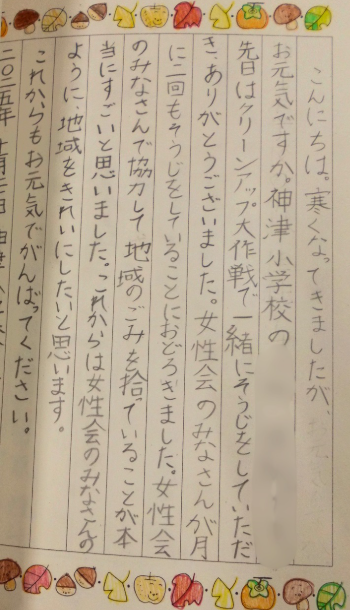 こんにちは。寒くなってきましたが、
お元気ですか。神津小学校の
先日はクリーンアップ大作戦で一緒にそうじをしていただ
き、ありがとうございました。女性会のみなさんが月
に二回もそうじをしていることにおどろきました。女性会
のみなさんで協力して地域のごみを拾っていることが本
当にすごいと思いました。これからは女性会のみなさんの
ように、地域をきれいにしたいと思います。
これからもお元気でがんばってください。
二〇二五年